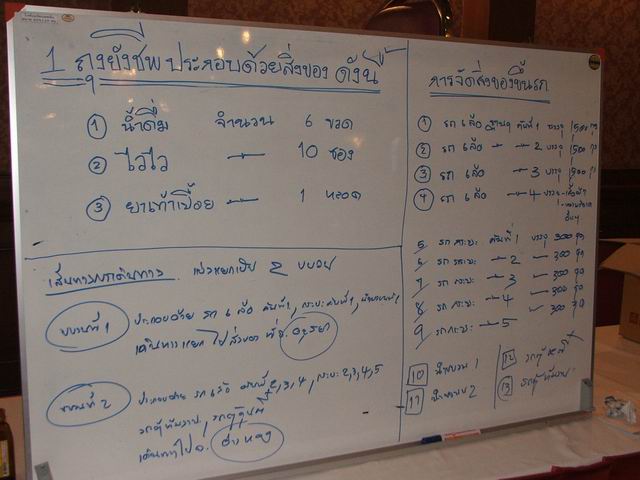 1 ถุงยังชีพ ประกอบด้วยสิ่งของ ดังนี้
① น้ำดื่ม จำนวน 6 ขวด
② ไวไว 10 ซอง
③ ยาเท้าเปื่อย 1 หลอด
เส้นทางการเดินทาง แบ่งแยกเป็น 2 ขบวน
ขบวนที่ 1
ประกอบด้วย รถ 6 ล้อ คันที่ 1, กระบะคันที่ 1,
เดินทางแยกไป
อยุธยา
ขบวนที่ 2
ประกอบด้วย รถ 6 ล้อ คันที่ 2,3,4, กระบะ 2,3,4,5
เดินทางไป จ.
อ่างทอง
การจัดสิ่งของขึ้นรถ
① รถ 6 ล้อ คันที่ 1 บรรจุ 1500 ถุง
② รถ 6 ล้อ 2 บรรจุ 1500 ถุง
③ รถ 6 ล้อ 3 บรรจุ 1500 ถุง
④ รถ 6 ล้อ 4 บรรจุ
5 รถกระบะ คันที่ 1 บรรจุ 300 ชุด
6 รถกระบะ 2 300 ชุด
7 รถกระบะ 3 300 ชุด
8 รถกระบะ 4 300 ชุด
9 รถกระบะ 5
10 นำขบวน 1
11 นำขบวน 2
12 รถตู้
13 รถตู้